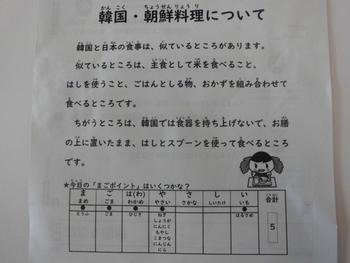 韓国・朝鮮料理について
韓国と日本の食事は、似ているところがあります。
似ているところは、主食として米を食べること、
はしを使うこと、ごはんとしる物、おかずを組み合わせて
食べるところです。
ちがうところは、韓国では食器を持ち上げないで、お膳
の上に置いたまま、はしとスプーンを使って食べるところ
です。
★今日の「まごポイント」はいくつかな?
ま ご は(わ) や さ し い 合計
まめ ごま わかめ やさい さかな しいたけ いも
● ● ● ● ●
とうふ ごま ひじき ねぎ はるさめ 5
しょうが
にんにく
もやし
こまつな
にんじん
にら